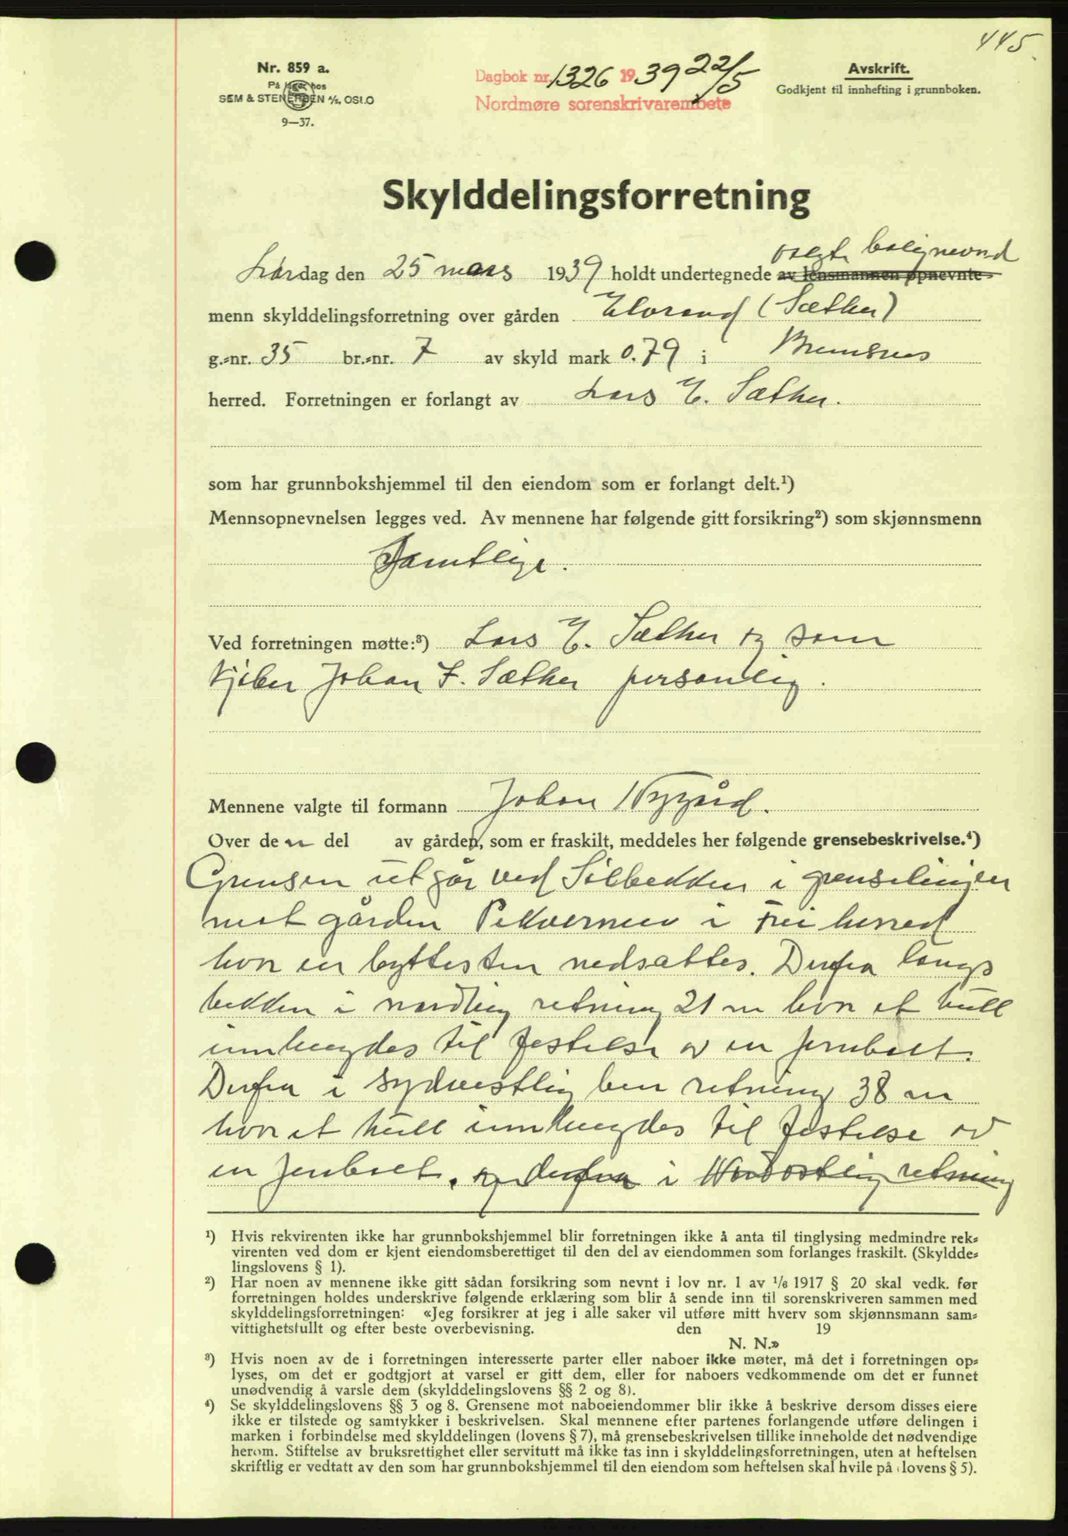 445.
Nr. 859 a.
På lager hos
SEM & STENERSEN A/S, OSLO
9—37.
Dagbok nr. 1326 1939 22/5
Nordmøre sorenskrivarembete
Avskrift.
Godkjent til innhefting i grunnboken.
Skylddelingsforretning
valgte
Lørdag den 25 mars 1939 holdt undertegnede av lensmannen opnevnte
menn skylddelingsforretning over gården (Sæther)
g.-nr. 35 br.-nr. 7 av skyld mark 0.79 i Bremsnes
herred. Forretningen er forlangt av Lars E. Sæther.
som har grunnbokshjemmel til den eiendom som er forlangt delt.¹)
Mennsopnevnelsen legges ved. Av mennene har følgende gitt forsikring²) som skjønnsmenn
Samtlige.
Ved forretningen møtte:³) Lars E. Sæther og som
kjöber Johan F. Sæther personlig.
Mennene valgte til formann Johan Nygård.
Over den del av gården, som er fraskilt, meddeles her følgende grensebeskrivelse.⁴)
Grensen utgår ved i grenselinjen
mot gården i Frei herred
hvor en byttesten nedsattes. Derfra langs
bekken i nordlig retning 21 m hvor et hull
innhugdes til festelse av en jernbolt.
Derfra i sydvestlig ben retning 38 m
hvor et hull innhugdes til festelse av
en jernbolt. og derfra i Nordostlig retning
¹) Hvis rekvirenten ikke har grunnbokshjemmel blir forretningen ikke å anta til tinglysing medmindre rek-
virenten ved dom er kjent eiendomsberettiget til den del av eiendommen som forlanges fraskilt. (Skyldde-
lingslovens § 1).
²) Har noen av mennene ikke gitt sådan forsikring som nevnt i lov nr. 1 av 1/6 1917 § 20 skal vedk. før
forretningen holdes underskrive følgende erklæring som blir å sende inn til sorenskriveren sammen med
skylddelingsforretningen: «Jeg forsikrer at jeg i alle saker vil utføre mitt hverv som skjønnsmann sam-
vittighetsfullt og efter beste overbevisning. den 19
N. N.»
³) Hvis noen av de i forretningen interesserte parter eller naboer ikke møter, må det i forretningen op-
lyses, om det er godtgjort at varsel er gitt dem, eller for naboers vedkommende om det er funnet
unødvendig å varsle dem (skylddelingslovens §§ 2 og 8).
⁴) Se skylddelingslovens §§ 3 og 8. Grensene mot naboeiendommer blir ikke å beskrive dersom disses eiere
ikke er tilstede og samtykker i beskrivelsen. Skal mennene efter partenes forlangende utføre delingen i
marken i forbindelse med skylddelingen (lovens § 7), må grensebeskrivelsen tillike inneholde det nødvendige
herom. Stiftelse av bruksrettighet eller servitutt må ikke tas inn i skylddelingsforretningen, uten at heftelsen
skriftlig er vedtatt av den som har grunnbokshjemmel til den eiendom som heftelsen skal hvile på (lovens § 5).